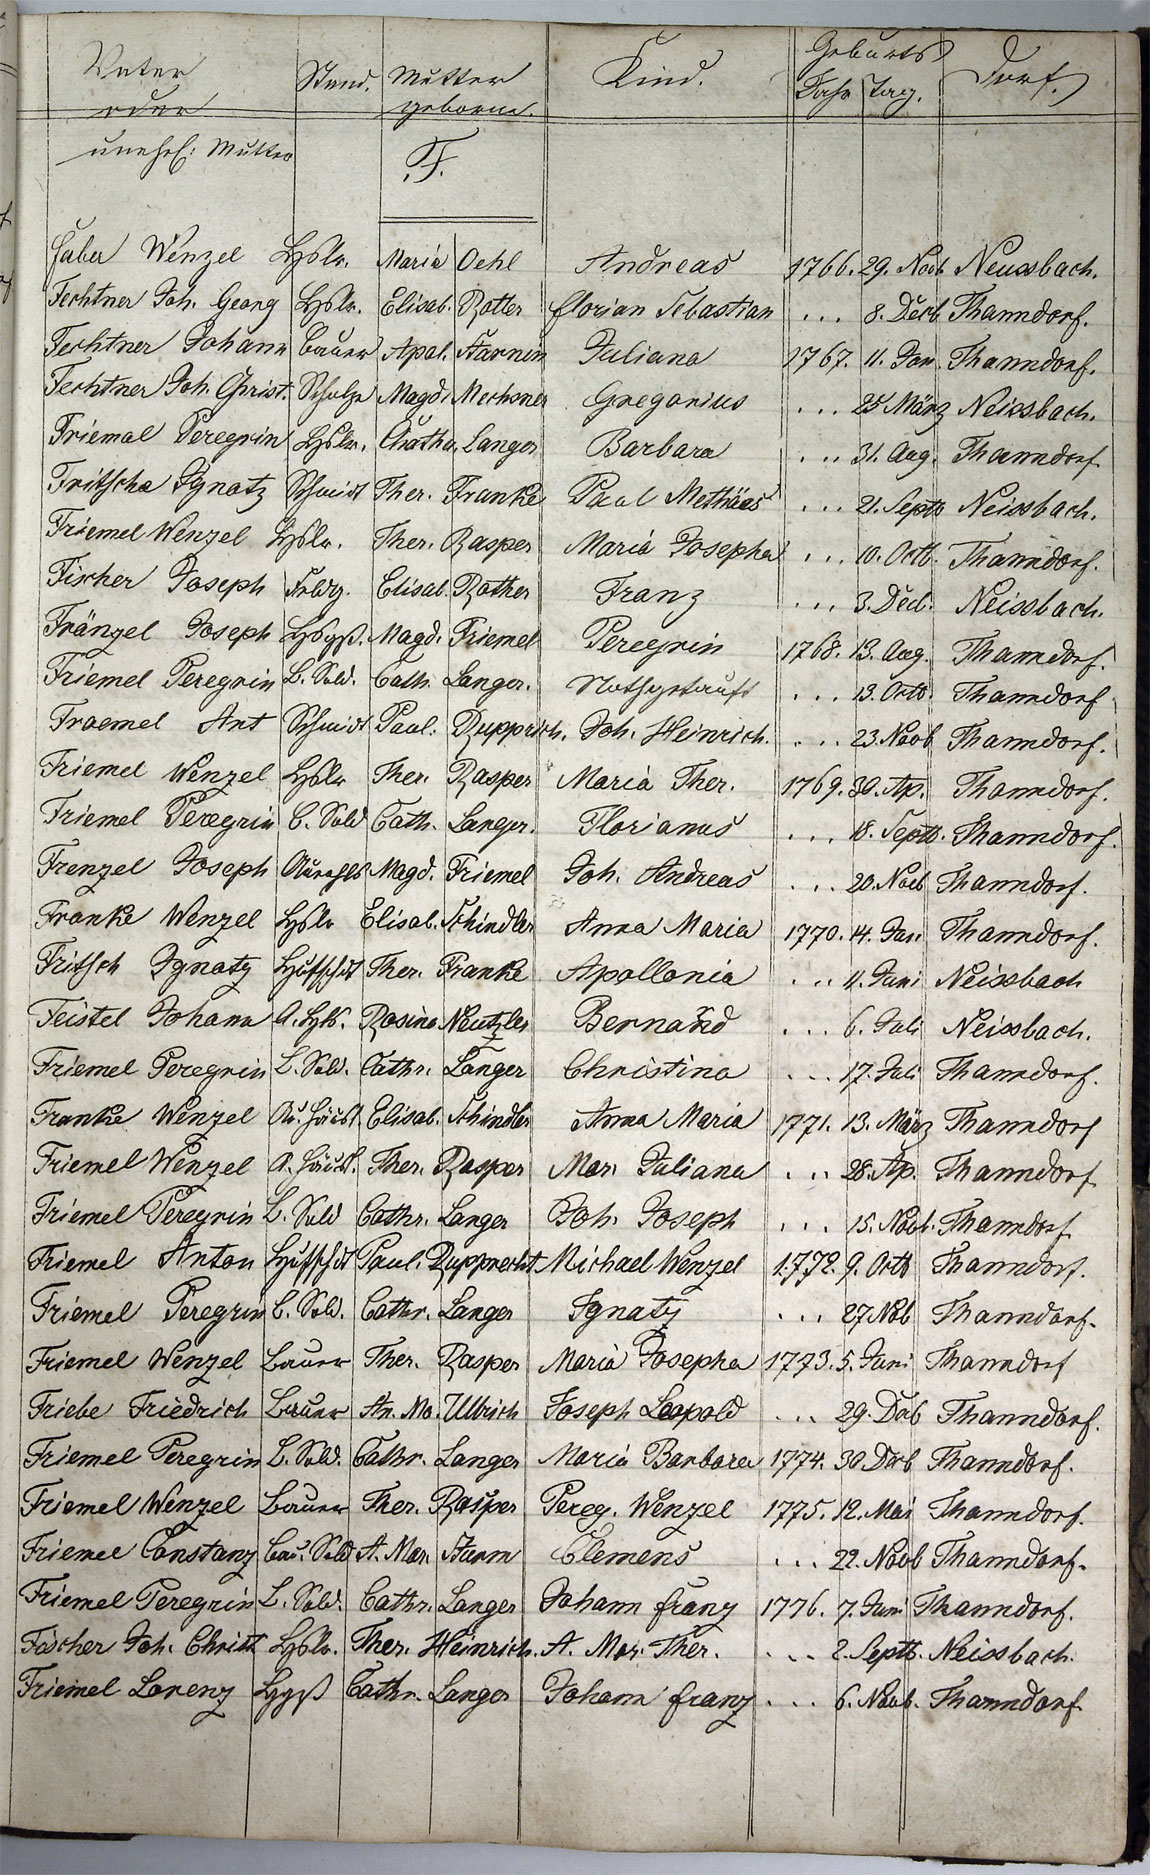 Vater Stand. Mutter Kind. Geburts Dorf.
oder geborne. Jahr Tag.
unehel: Mutter F.
Faber Wenzel Hslr. Maria Oehl Andreas 1766. 29. Novb Neussbach.
Fechtner Joh. Georg Hslr. Elisab. Rotter Florian Sebastian ... 8. Decb Thanndorf.
Fechtner Johann Bauer Apol. Sturmin Juliana 1767. 11. Jan. Thanndorf.
Fechtner Joh. Christ. Scholze Magd. Mechsner Gregorius ... 25 März Neissbach.
Friemal Peregrin Hslr. Catha. Langer Barbara ... 31. Aug. Thanndorf.
Fritsche Ignatz Schmidt Ther. Franke Paul Methäas ... 21. Septb Neissbach.
Friemel Wenzel Hslr. Ther. Rasper Maria Josepha ... 10. Octb. Thanndorf.
Fischer Joseph Elisab. Rother Franz ... 3. Decb. Neissbach.
Fränzel Joseph Magd. Friemel Peregrin 1768. 13. Aug. Thanndorf.
Friemel Peregrin B. Sold. Cath. Langer. Nothgetauft ... 13. Octb. Thanndorf
Froemel Ant Schmidt Paul. Rupprich. Joh. Heinrich. ... 23. Novb Thanndorf.
Friemel Wenzel Hslr Ther. Rasper Maria Ther. 1769. 30. Ap. Thanndorf.
Friemel Peregrin B. Sold Cath. Langer. Florianus ... 18. Septb. Thanndorf.
Frenzel Joseph Magd. Friemel Joh. Andreas ... 20. Novb Thanndorf.
Franke Wenzel Hslr Elisab. Schindler Anna Maria 1770. 14. Jan Thanndorf.
Fritsch Ignatz Hufschdt Ther. Franke Apollonia ... 4. Juni Neissbach
Feistel Johann A. Hsl. Rosina Neutzler Bernard ... 6. Juli Neissbach.
Friemel Peregrin B. Sold. Cathr. Langer Christina ... 17. Juli Thanndorf.
Franke Wenzel Au. Häusl. Elisab. Schindler Anna Maria 1771. 13. März Thanndorf
Friemel Wenzel A. Häusl. Ther. Rasper Mar. Juliana ... 28. Ap. Thanndorf
Friemel Peregrin B. Sold Cathr. Langer Joh. Joseph ... 15. Novb. Thanndorf.
Friemel Anton Hufschdt Paul. Rupprecht Michael Wenzel 1772. 9. Octb Thanndorf.
Friemel Peregrin B. Sold. Cathr. Langer Ignatz ... 27 Nob Thanndorf.
Friemel Wenzel Bauer Ther. Rasper Maria Josepha 1773. 5. Juni Thanndorf
Friebe Friedrich Bauer An. Ma. Ullrich Joseph Leopold ... 29. Dcb Thanndorf.
Friemel Peregrin B. Sold. Cathr. Langer Maria Barbara 1774. 30 Dcb Thanndorf.
Friemel Wenzel Bauer Ther. Rasper Pereg. Wenzel 1775. 12. Mai Thanndorf.
Friemel Constanz Bau. Sold A. Mar. Sturm Clemens ... 22. Novb Thanndorf.
Friemel Peregrin B. Sold. Cathr. Langer Johann Franz 1776. 7. Juni Thanndorf.
Fischer Joh. Christ Hslr. Ther. Heinrich. A. Mar. Ther. ... 2. Septb. Neissbach.
Friemel Lorenz Cathr. Langer Johann Franz ... 6. Novb. Thanndorf.